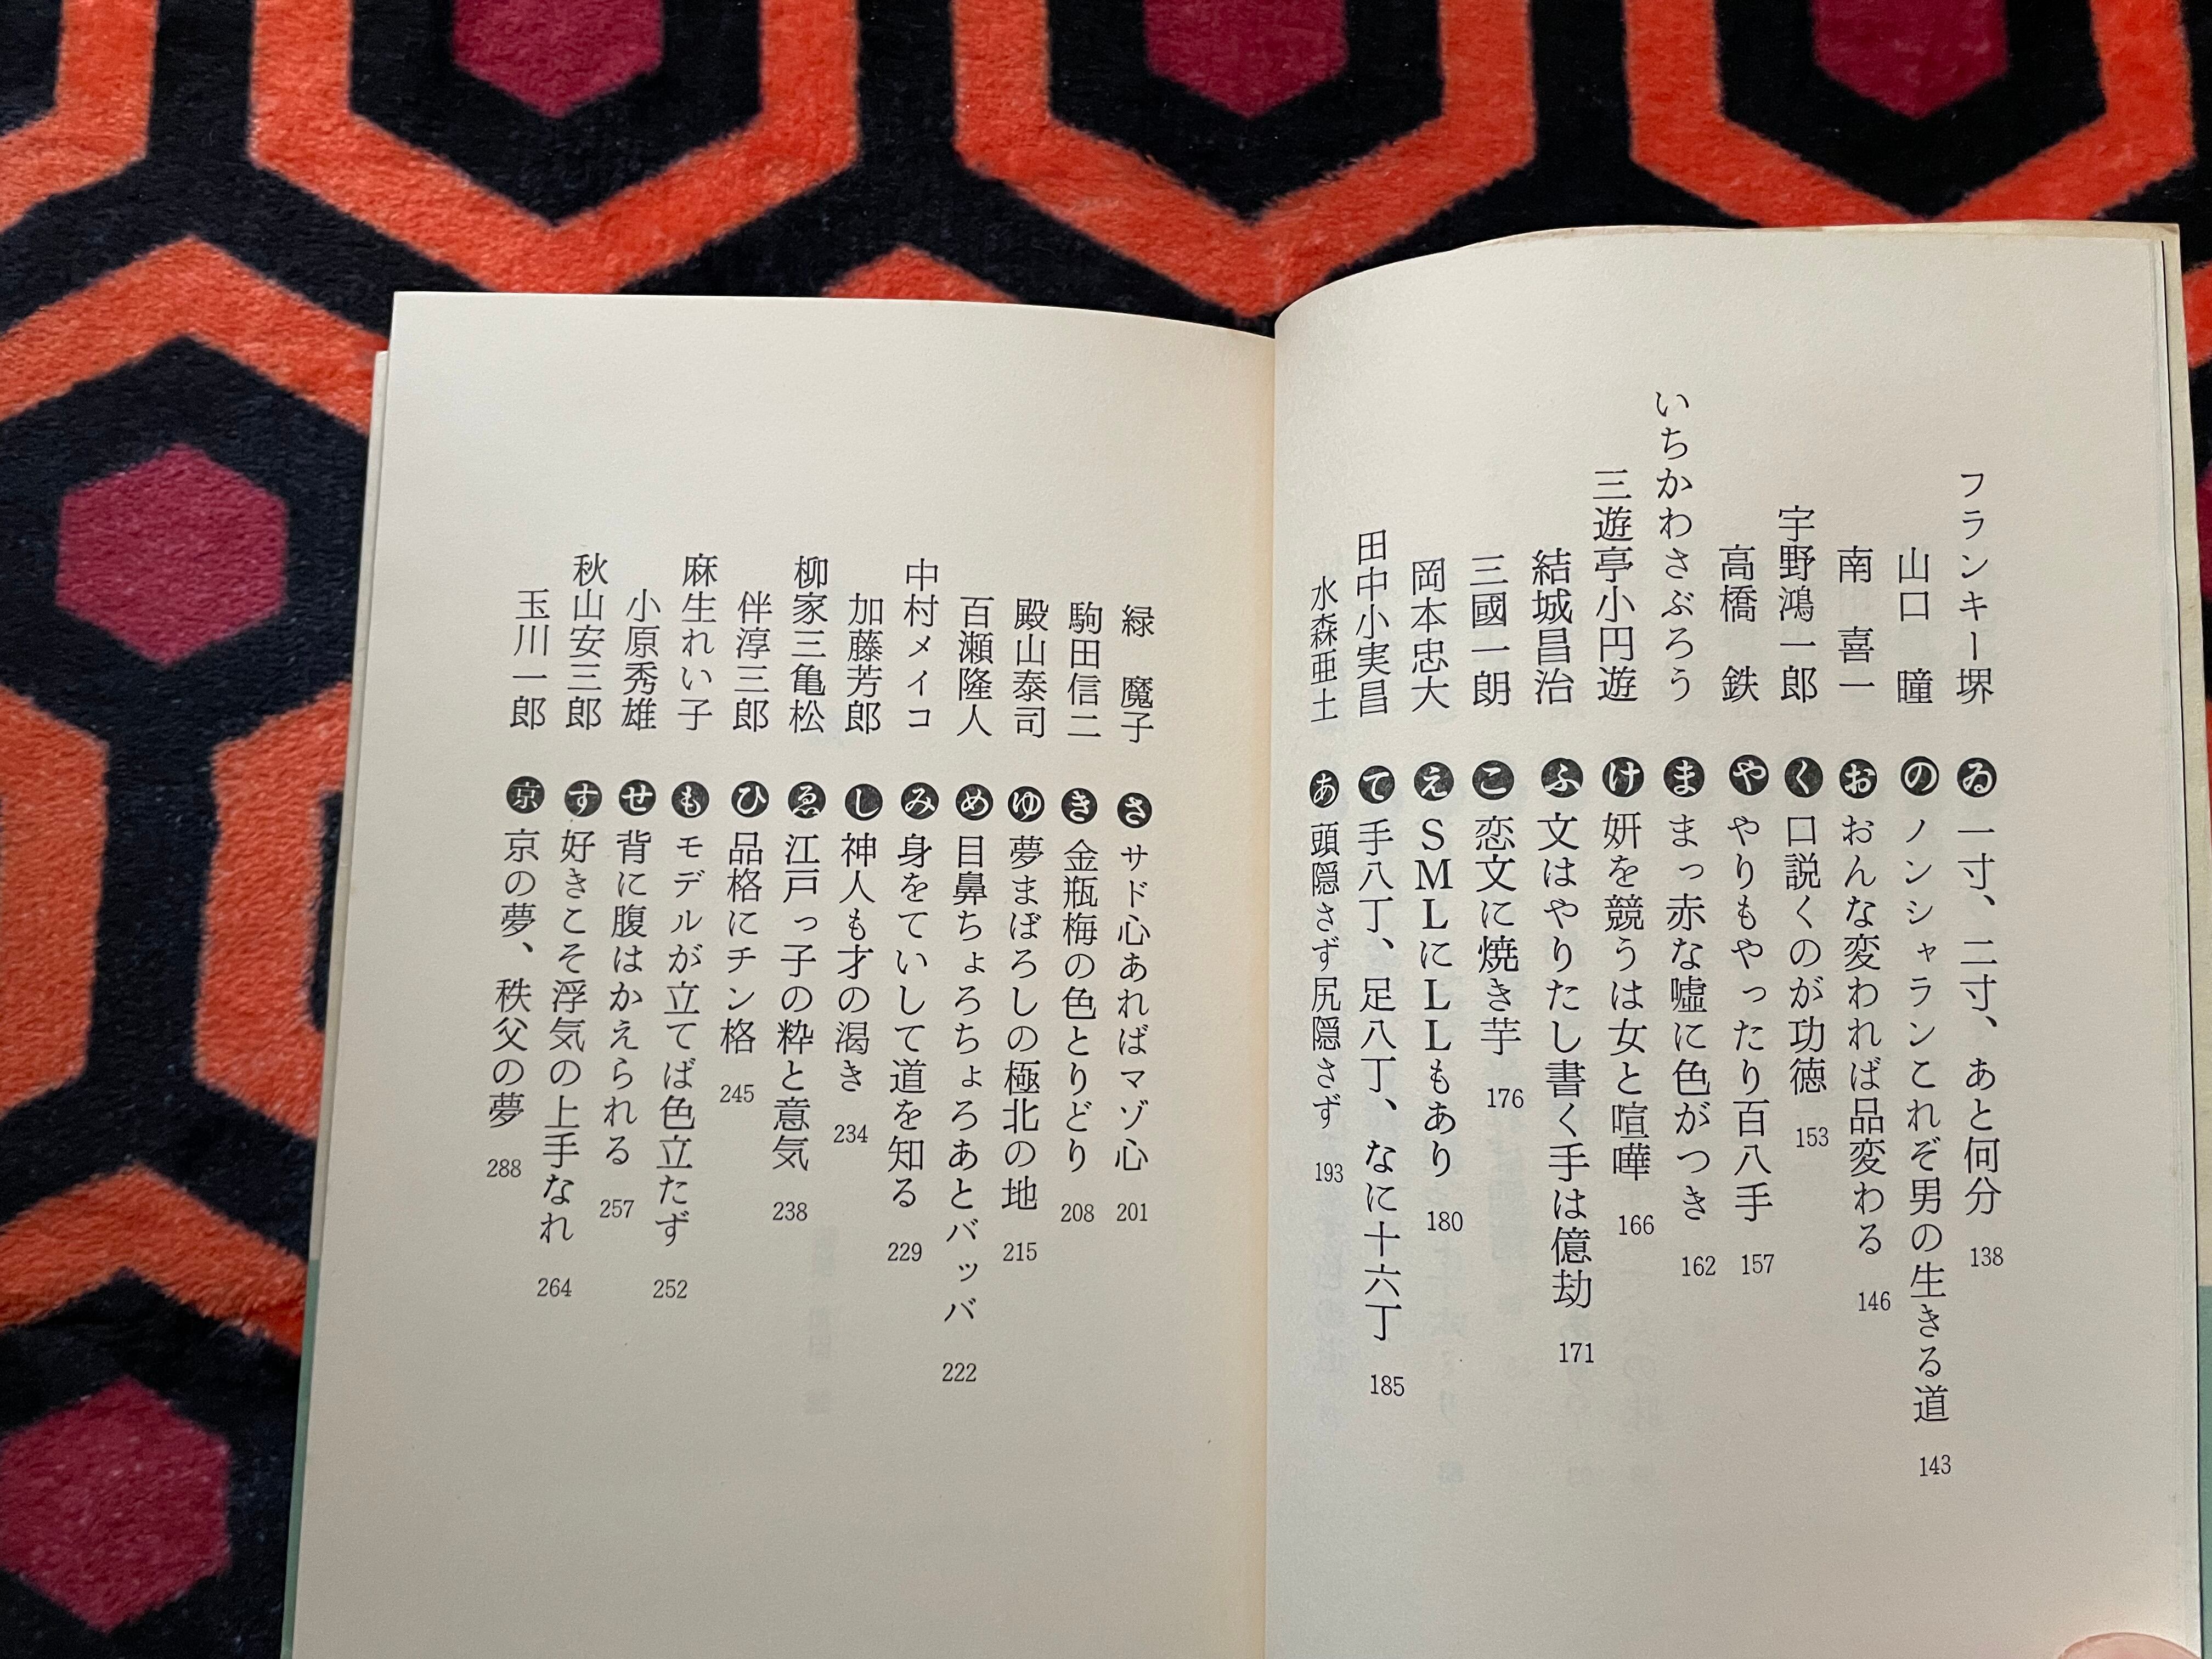 フランキー堺 ゐ 一寸、二寸、あと何分 138
山口 瞳 の ノンシャランこれぞ男の生きる道 143
南 喜一 お おんな変われば品変わる 146
宇野鴻一郎 く 口説くのが功徳 153
高橋 鉄 や やりもやったり百八手 157
いちかわさぶろう ま まっ赤な嘘に色がつき 162
三遊亭小円遊 け 妍を競うは女と喧嘩 166
結城昌治 ふ 文はやりたし書く手は億劫 171
三國一朗 こ 恋文に焼き芋 176
岡本忠大 え SMLにLLもあり 180
田中小実昌 て 手八丁、足八丁、なに十六丁 185
水森亜土 あ 頭隠さず尻隠さず 193
緑 魔子 さ サド心あればマゾ心 201
駒田信二 き 金瓶梅の色とりどり 208
殿山泰司 ゆ 夢まぼろしの極北の地 215
百瀬隆人 め 目鼻ちょろちょろあとバッバ 222
中村メイコ み 身をていして道を知る 229
加藤芳郎 し 神人も才の渇き 234
柳家三亀松 ゑ 江戸っ子の粋と意気 238
伴淳三郎 ひ 品格にチン格 245
麻生れい子 も モデルが立てば色立たず 252
小原秀雄 せ 背に腹はかえられる 257
秋山安三郎 す 好きこそ浮気の上手なれ 264
玉川一郎 京 京の夢、秩父の夢 288